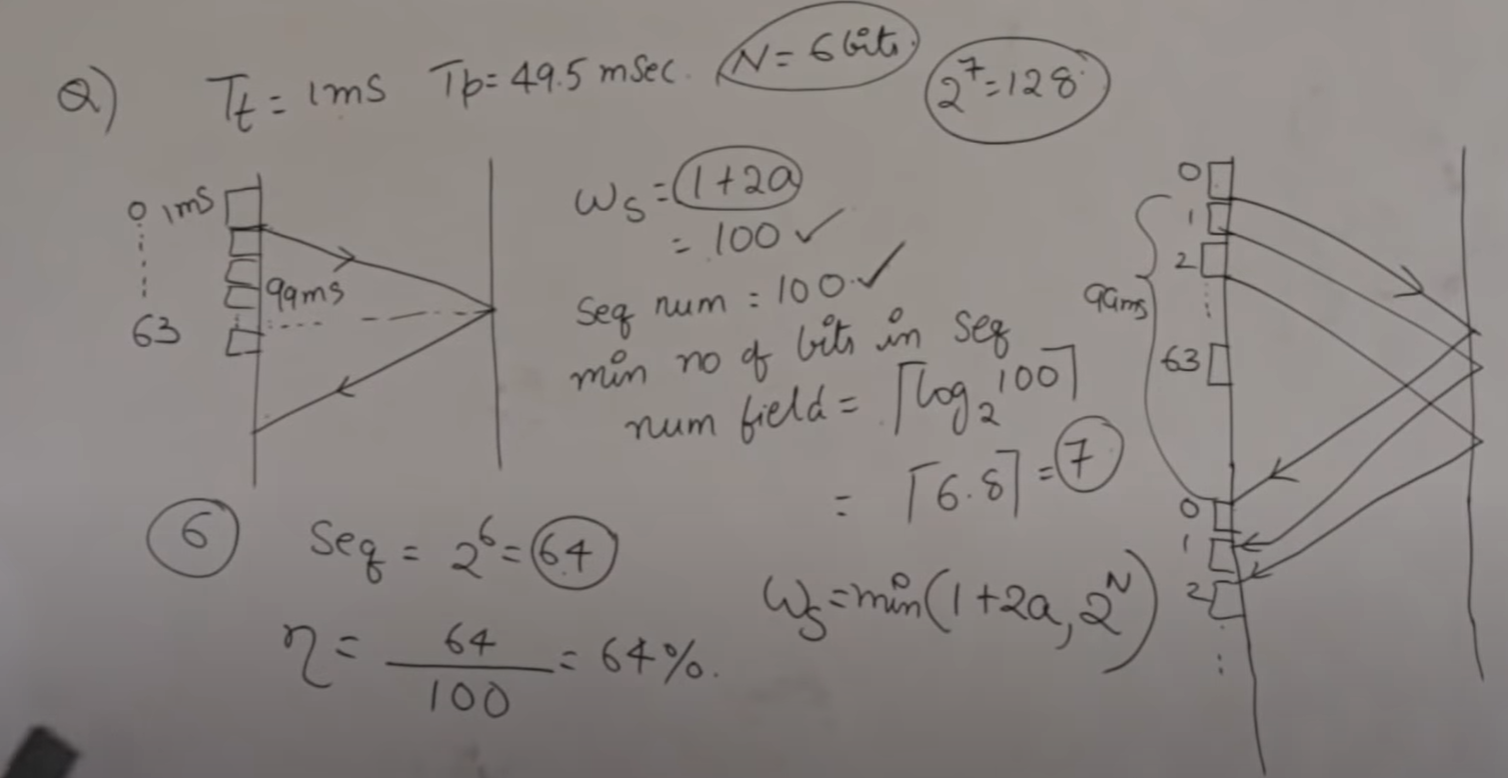 Q) Tt = 1ms Tp = 49.5 mSec. N = 6 bits. 2^7 = 128
0 1ms
99ms
63
Ws = (1+2a)
= 100 ✓
Seq num = 100 ✓
min no of bits in seq
num field = ⌈log₂ 100⌉
= ⌈6.8⌉ = 7
6 Seq = 2^6 = 64
η = 64/100 = 64%.
Ws = min(1+2a, 2^N)
0
1
2
99ms
63
0
1
2